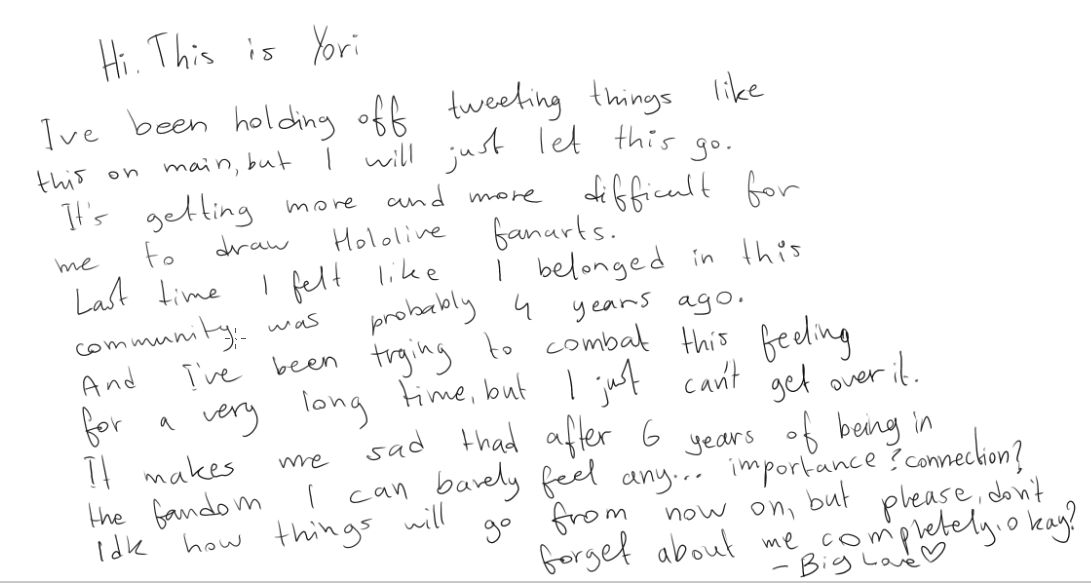 Hi. This is Yori
I've been holding off tweeting things like
this on main, but I will just let this go.
It's getting more and more difficult for
me to draw Hololive fanarts.
Last time I felt like I belonged in this
community, was probably 4 years ago.
And I've been trying to combat this feeling
for a very long time, but I just can't get over it.
It makes me sad thad after 6 years of being in
the fandom I can barely feel any... importance? connection?
Idk how things will go from now on, but please, don't
forget about me completely, okay?
- Big Love ♡